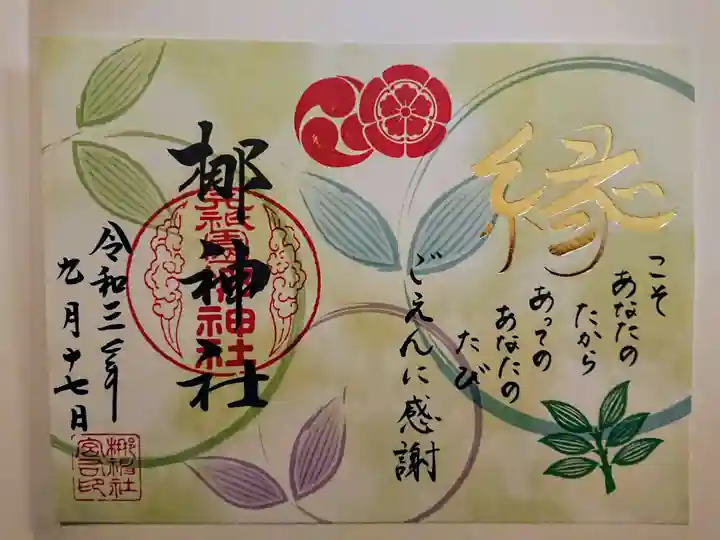 縁
こそ
あなたの
たから
あっての
あなたの
たび
ごえんに感謝
梛神社
令和三年
九月十七日
梛神社
宮司印